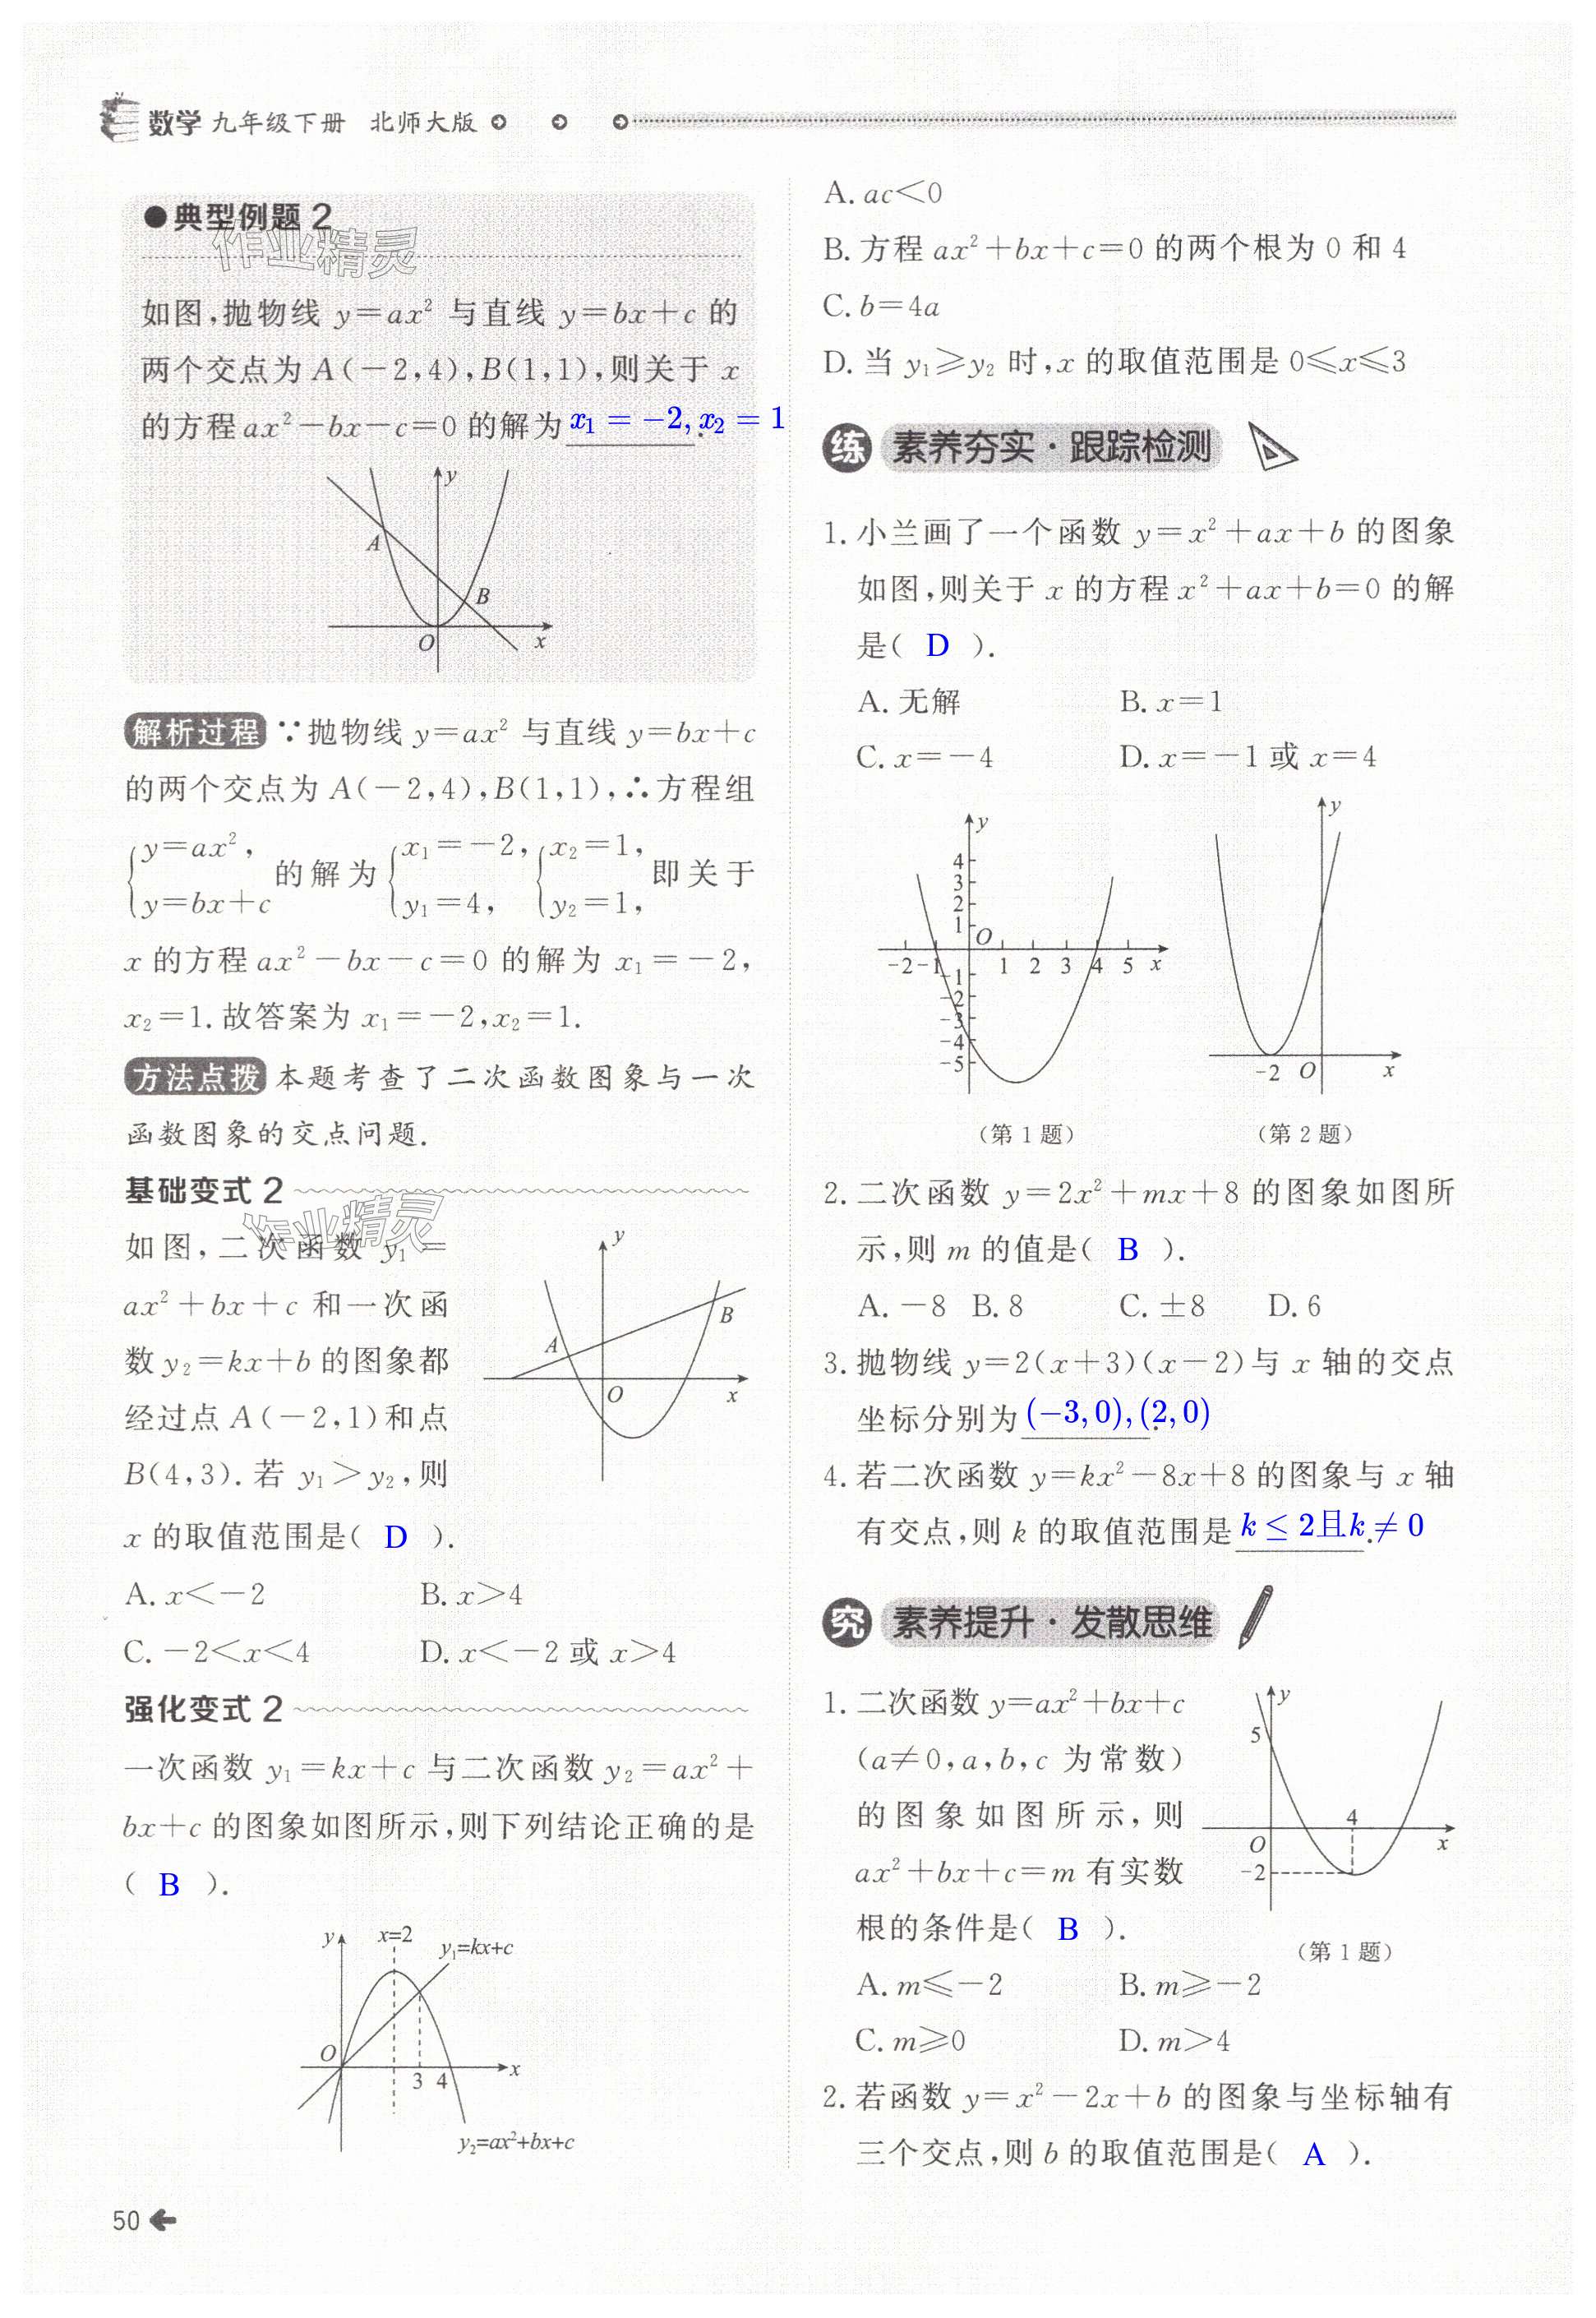 数学 九年级下册 北师大版
●典型例题 2
作业精灵
如图,抛物线 y=ax² 与直线 y=bx+c 的
两个交点为 A(-2,4),B(1,1),则关于 x
的方程 ax²-bx-c=0 的解为 x₁ = -2, x₂ = 1.
y
A
B
O
x
解析过程 ∵抛物线 y=ax² 与直线 y=bx+c
的两个交点为 A(-2,4),B(1,1),∴方程组
{y=ax², y=bx+c 的解为 {x₁=-2, y₁=4, {x₂=1, y₂=1, 即关于
x 的方程 ax²-bx-c=0 的解为 x₁=-2,
x₂=1.故答案为 x₁=-2,x₂=1.
方法点拨 本题考查了二次函数图象与一次
函数图象的交点问题.
基础变式 2
作业精灵
如图,二次函数 y₁=
ax²+bx+c 和一次函
数 y₂=kx+b 的图象都
经过点 A(-2,1)和点
B(4,3).若 y₁>y₂,则
x 的取值范围是( D ).
y
A
B
O
x
A. x<-2 B. x>4
C. -2<x<4 D. x<-2 或 x>4
强化变式 2
一次函数 y₁=kx+c 与二次函数 y₂=ax²+
bx+c 的图象如图所示,则下列结论正确的是
( B ).
y
x=2
y₁=kx+c
O
3 4
x
y₂=ax²+bx+c
50
A. ac<0
B. 方程 ax²+bx+c=0 的两个根为 0 和 4
C. b=4a
D. 当 y₁≥y₂ 时,x 的取值范围是 0≤x≤3
练 素养夯实·跟踪检测
1. 小兰画了一个函数 y=x²+ax+b 的图象
如图,则关于 x 的方程 x²+ax+b=0 的解
是( D ).
A. 无解 B. x=1
C. x=-4 D. x=-1 或 x=4
y
4
3
2
1
O
-2 -1 1 2 3 4 5 x
-1
-2
-3
-4
-5
y
-2 O x
(第 1 题) (第 2 题)
2. 二次函数 y=2x²+mx+8 的图象如图所
示,则 m 的值是( B ).
A. -8 B. 8 C. ±8 D. 6
3. 抛物线 y=2(x+3)(x-2)与 x 轴的交点
坐标分别为 (-3,0),(2,0).
4. 若二次函数 y=kx²-8x+8 的图象与 x 轴
有交点,则 k 的取值范围是 k ≤ 2且k ≠ 0.
究 素养提升·发散思维
1. 二次函数 y=ax²+bx+c
(a≠0,a,b,c 为常数)
的图象如图所示,则
ax²+bx+c=m 有实数
根的条件是( B ).
y
5
4
O
x
-2
(第 1 题)
A. m≤-2 B. m≥-2
C. m≥0 D. m>4
2. 若函数 y=x²-2x+b 的图象与坐标轴有
三个交点,则 b 的取值范围是( A ).